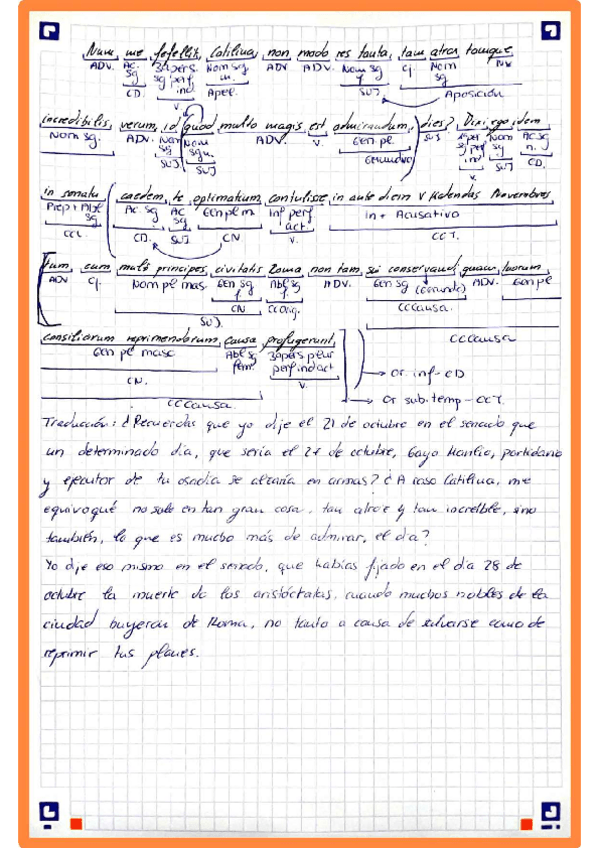 Num me fefellit, Catilina, non modo res tanta, tam atrox tamque
ADV. Ac. sg 3ªpers sg perf ind Nom sg m. ADV ADV. Nom sg f Cj. Nom sg
CD. V. Apel. SUJ Aposición
incredibilis, verum, id quod multo magis est admirandum, dies? Dixi ego idem
Nom sg. ADV. Nom sg Nom sg n. ADV. V. Gen pl. SUJ Nom sg Ac sg n.
SUJ SUJ Gerundivo V. SUJ CD.
in senatu caedem te optimatium contulisse in ante diem V Kalendas Novembres
Prep + Abl sg Ac sg Ac sg Gen pl m Inf perf act. In + Acusativo
CCL. CD. SUJ CN V. CCT.
tum cum multi principes civitatis Roma non tam sui conservandi quam tuorum
ADV Cj. Nom pl mas Gen sg f. Abl sg f. ADV. Gen sg (Gerundio) ADV. Gen pl
CN CC Orig. CCCausa.
SUJ. CCCausa
consiliorum reprimendorum causa profugerunt
Gen pl masc. Abl sg fem. 3ªpers plur perf ind act
CN. V. Or. inf - CD
CCCausa. Or sub. temp - CCT.
Traducción: ¿Recuerdas que yo dije el 21 de octubre en el senado que
un determinado día, que sería el 27 de octubre, Gayo Manlio, partidario
y ejecutor de tu osadía se alzaría en armas? ¿Acaso Catilina, me
equivoqué no solo en tan gran cosa, tan atroz y tan increíble, sino
también, lo que es mucho más de admirar, el día?
Yo dije eso mismo en el senado, que habías fijado en el día 28 de
octubre la muerte de los aristócratas, cuando muchos nobles de la
ciudad huyeron de Roma, no tanto a causa de salvarse como de
reprimir tus planes.